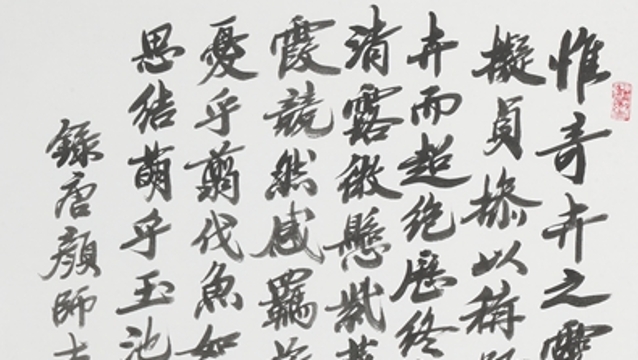 惟奇卉之靈
擬貞操以稱
卉而超絕歷終
清露微懸紫
霞競然感羈
憂乎翦伐魚
思結萌乎玉池
錄唐顏師古